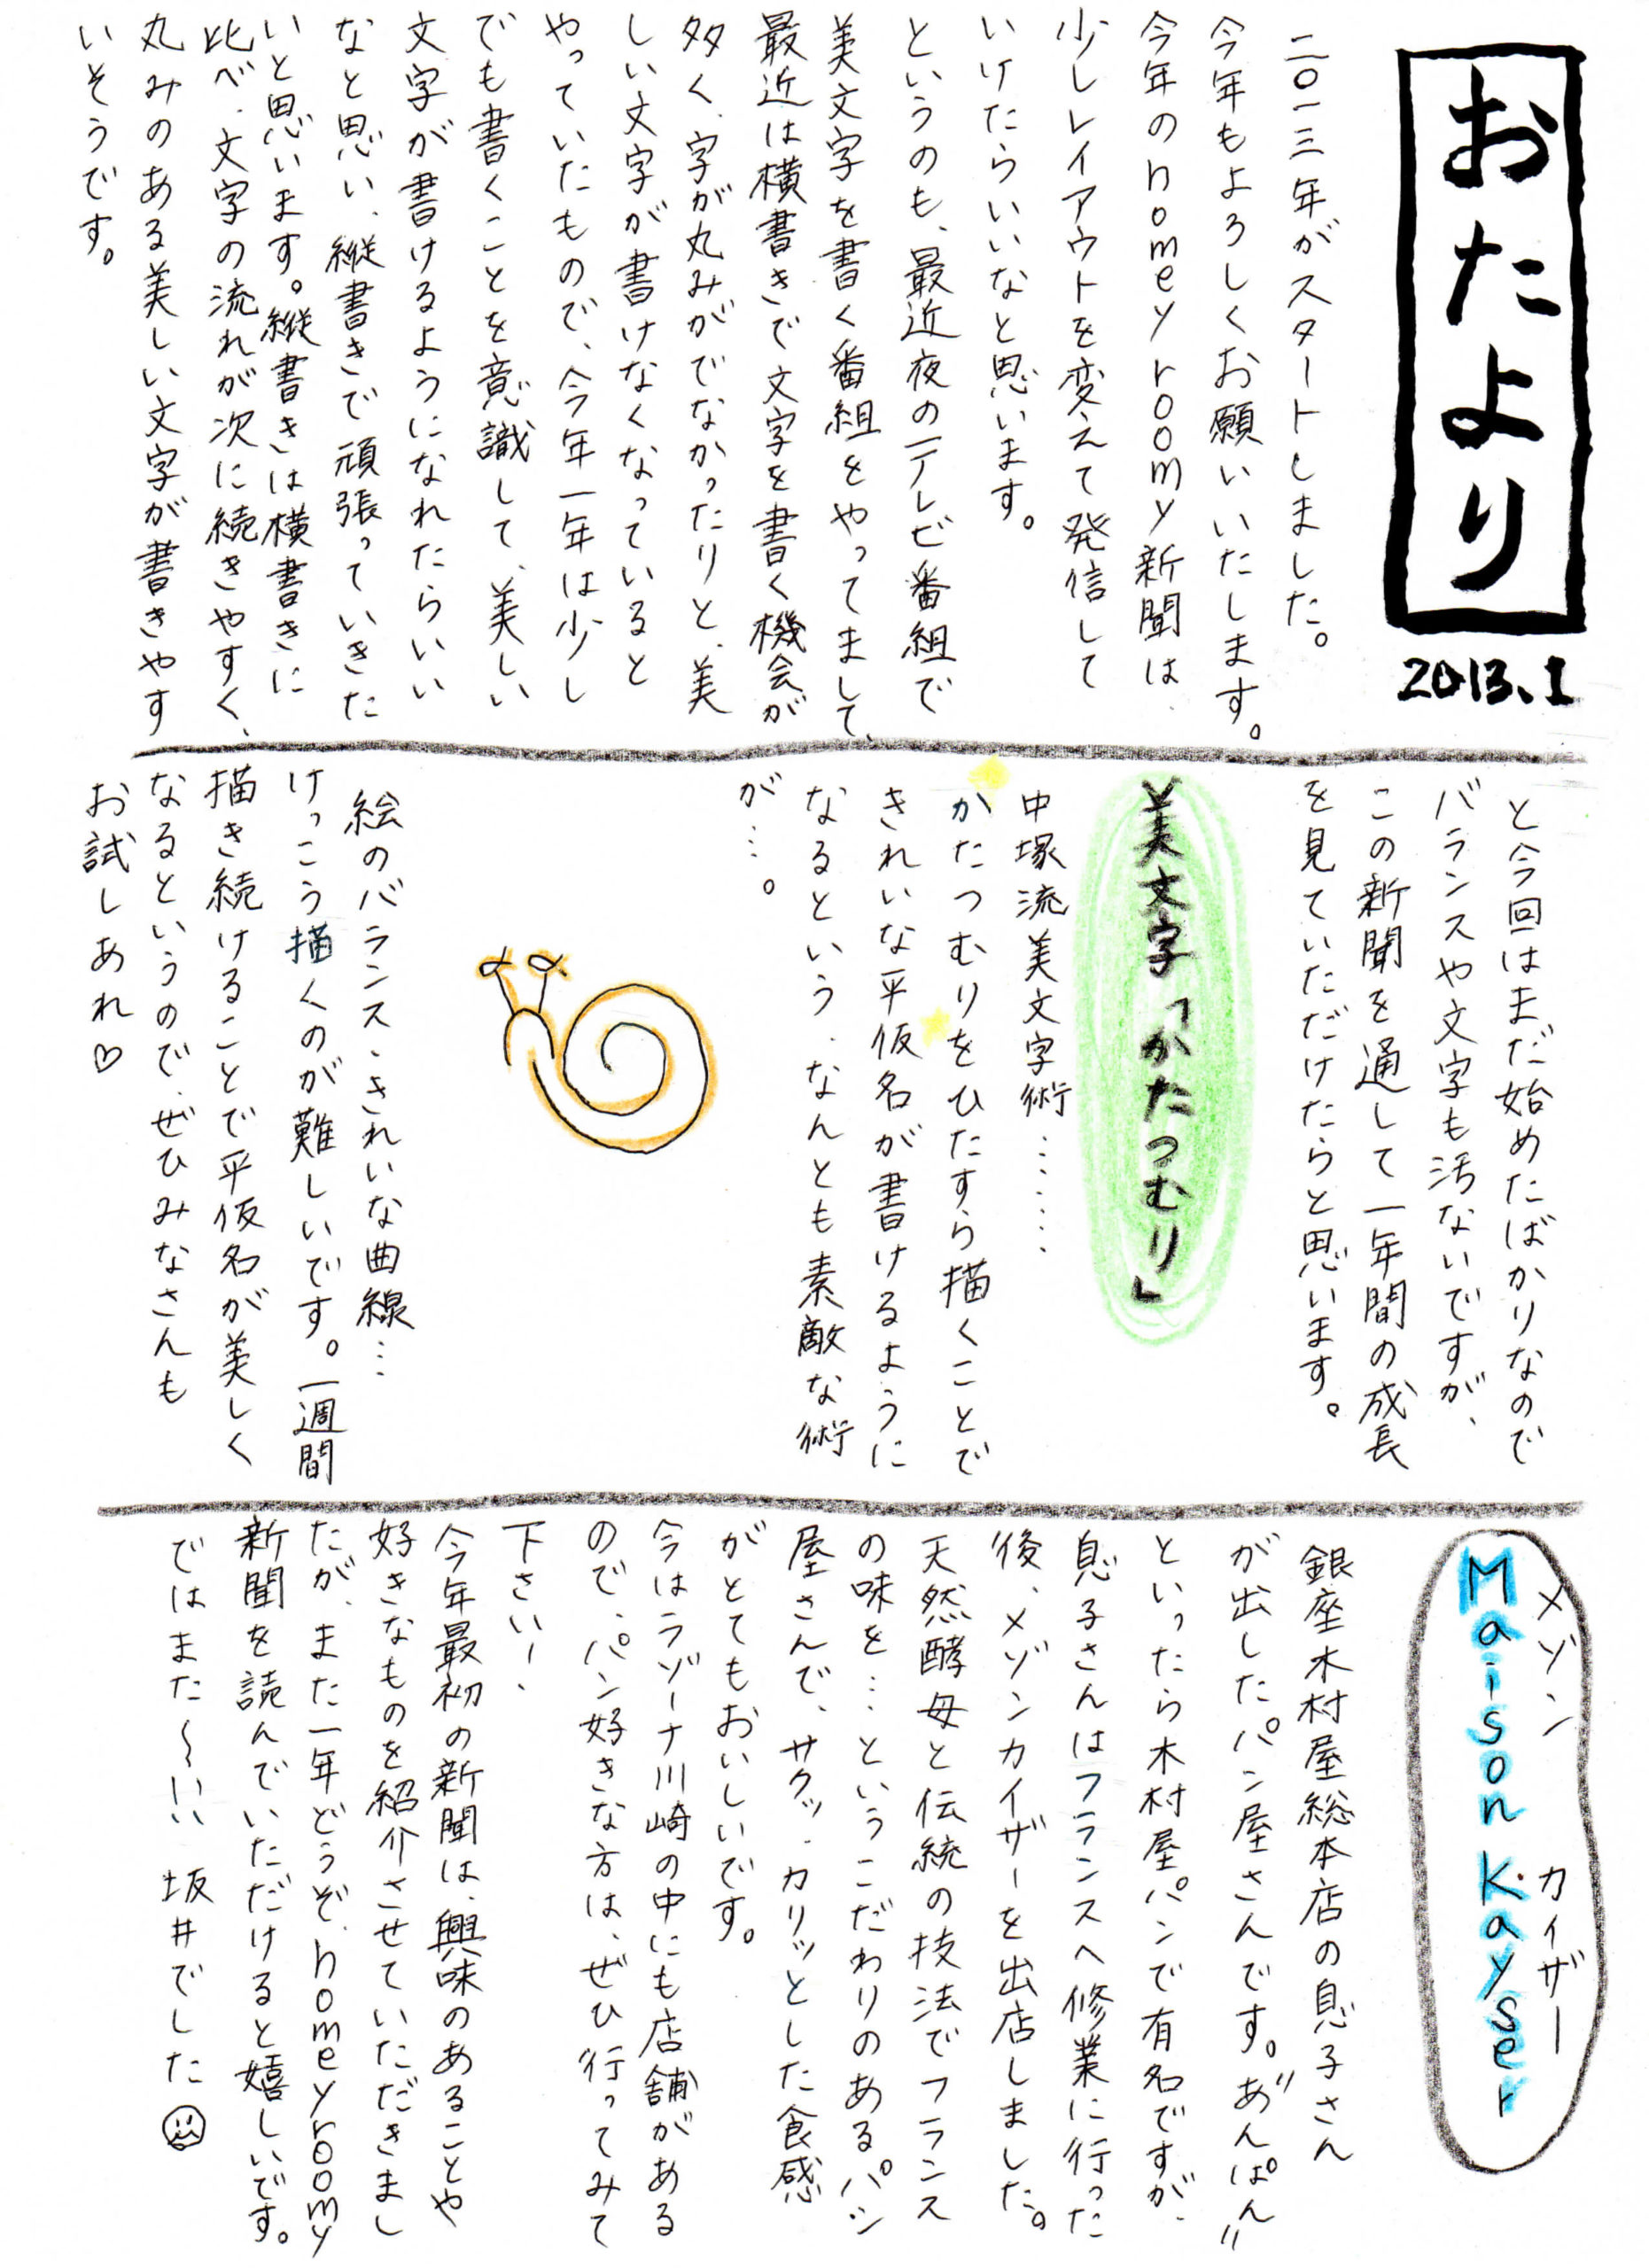 おたより
2013.1
二〇一三年がスタートしました。
今年もよろしくお願いいたします。
今年のhomey roomy新聞は、
少しレイアウトを変えて発信して
いけたらいいなと思います。
というのも、最近夜のテレビ番組で
美文字を書く番組をやってまして、
最近は横書きで文字を書く機会が
多く、字が丸みがでなかったりと、美
しい文字が書けなくなっていると
やっていたもので、今年一年は少し
でも書くことを意識して、美しい
文字が書けるようになれたらいい
なと思い、縦書きで頑張っていきた
いと思います。縦書きは横書きに
比べ、文字の流れが次に続きやすく、
丸みのある美しい文字が書きやす
いそうです。
と今回はまだ始めたばかりなので
バランスや文字も汚ないですが、
この新聞を通して一年間の成長
を見ていただけたらと思います。
美文字「かたつむり」
中塚流美文字術……
かたつむりをひたすら描くことで
きれいな平仮名が書けるように
なるという、なんとも素敵な術
が…。
絵のバランス、きれいな曲線…
けっこう描くのが難しいです。一週間
描き続けることで平仮名が美しく
なるというので、ぜひみなさんも
お試しあれ♡
メゾン カイザー
Maison Kayser
銀座木村屋総本店の息子さん
が出したパン屋さんです。"あんぱん"
といったら木村屋パンで有名ですが、
息子さんはフランスへ修業に行った
後、メゾンカイザーを出店しました。
天然酵母と伝統の技法でフランス
の味を…というこだわりのあるパン
屋さんで、サクッ、カリッとした食感
がとてもおいしいです。
今はラゾーナ川崎の中にも店舗がある
ので、パン好きな方は、ぜひ行ってみて
下さい!
今年最初の新聞は、興味のあることや
好きなものを紹介させていただきまし
たが、また一年どうぞ、homeyroomy
新聞を読んでいただけると嬉しいです。
ではまた〜!!! 坂井でした